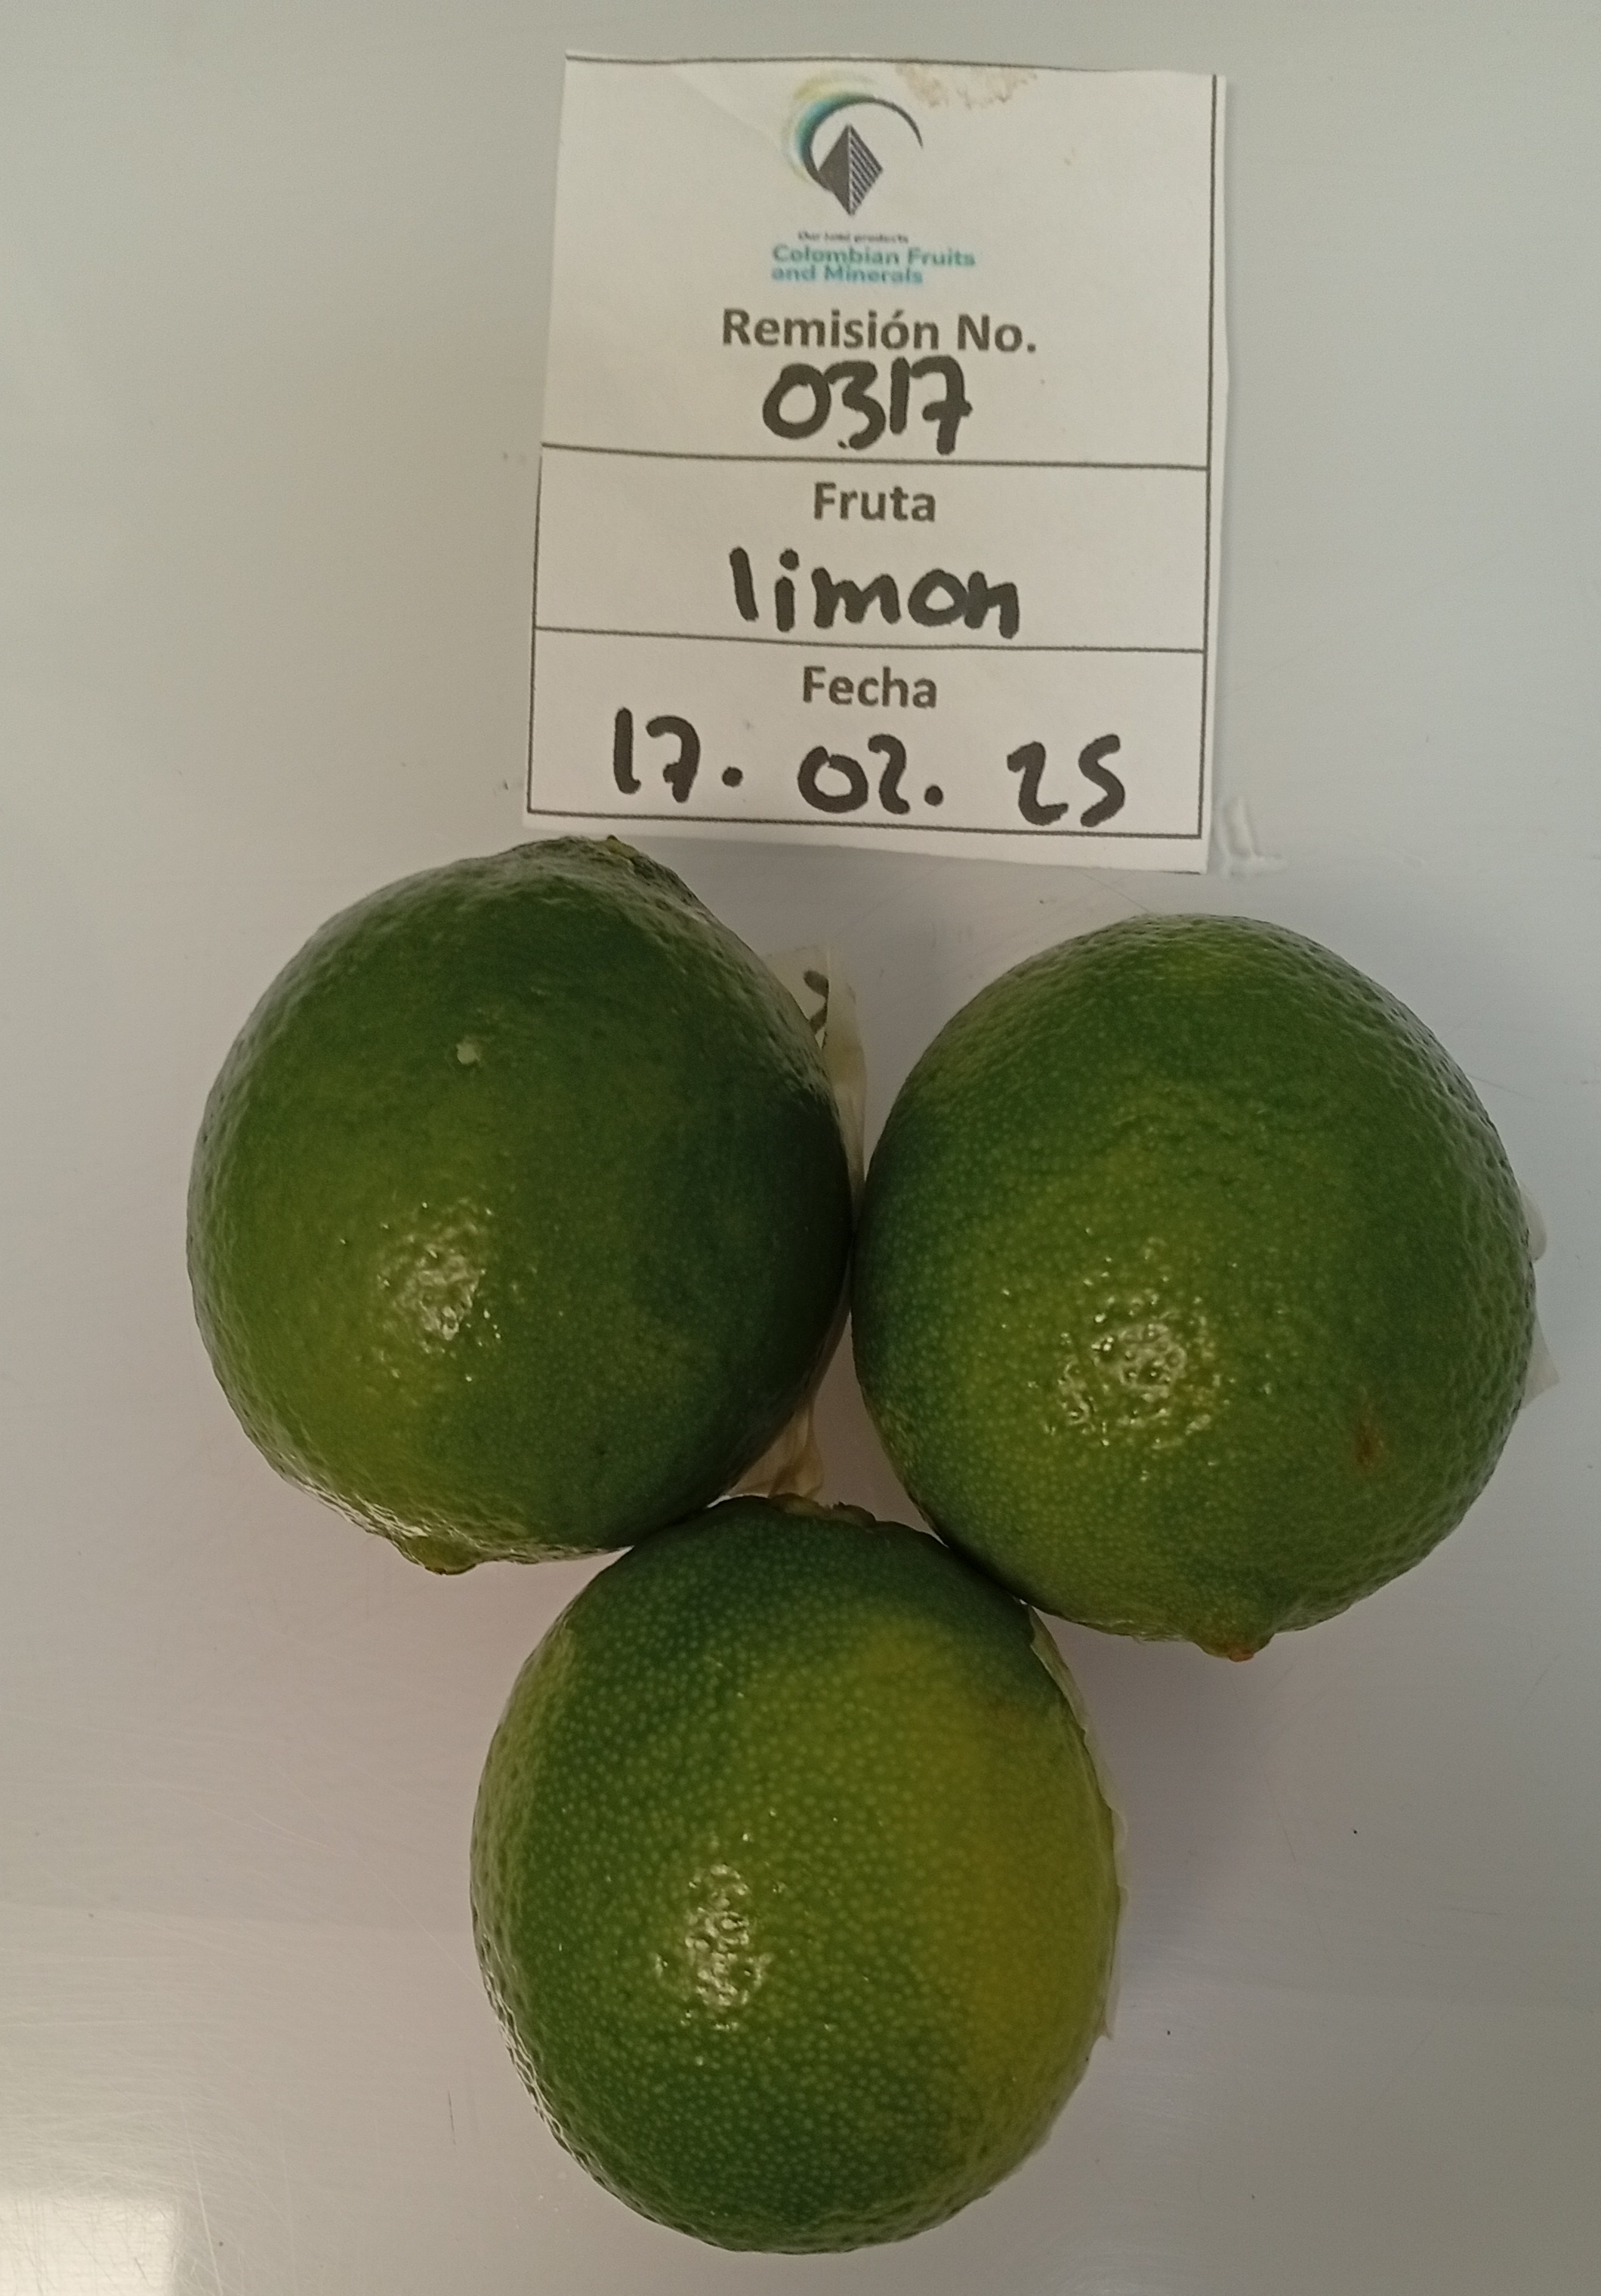 Our best products
Colombian Fruits
and Minerals
Remisión No.
0317
Fruta
limon
Fecha
17. 02. 25